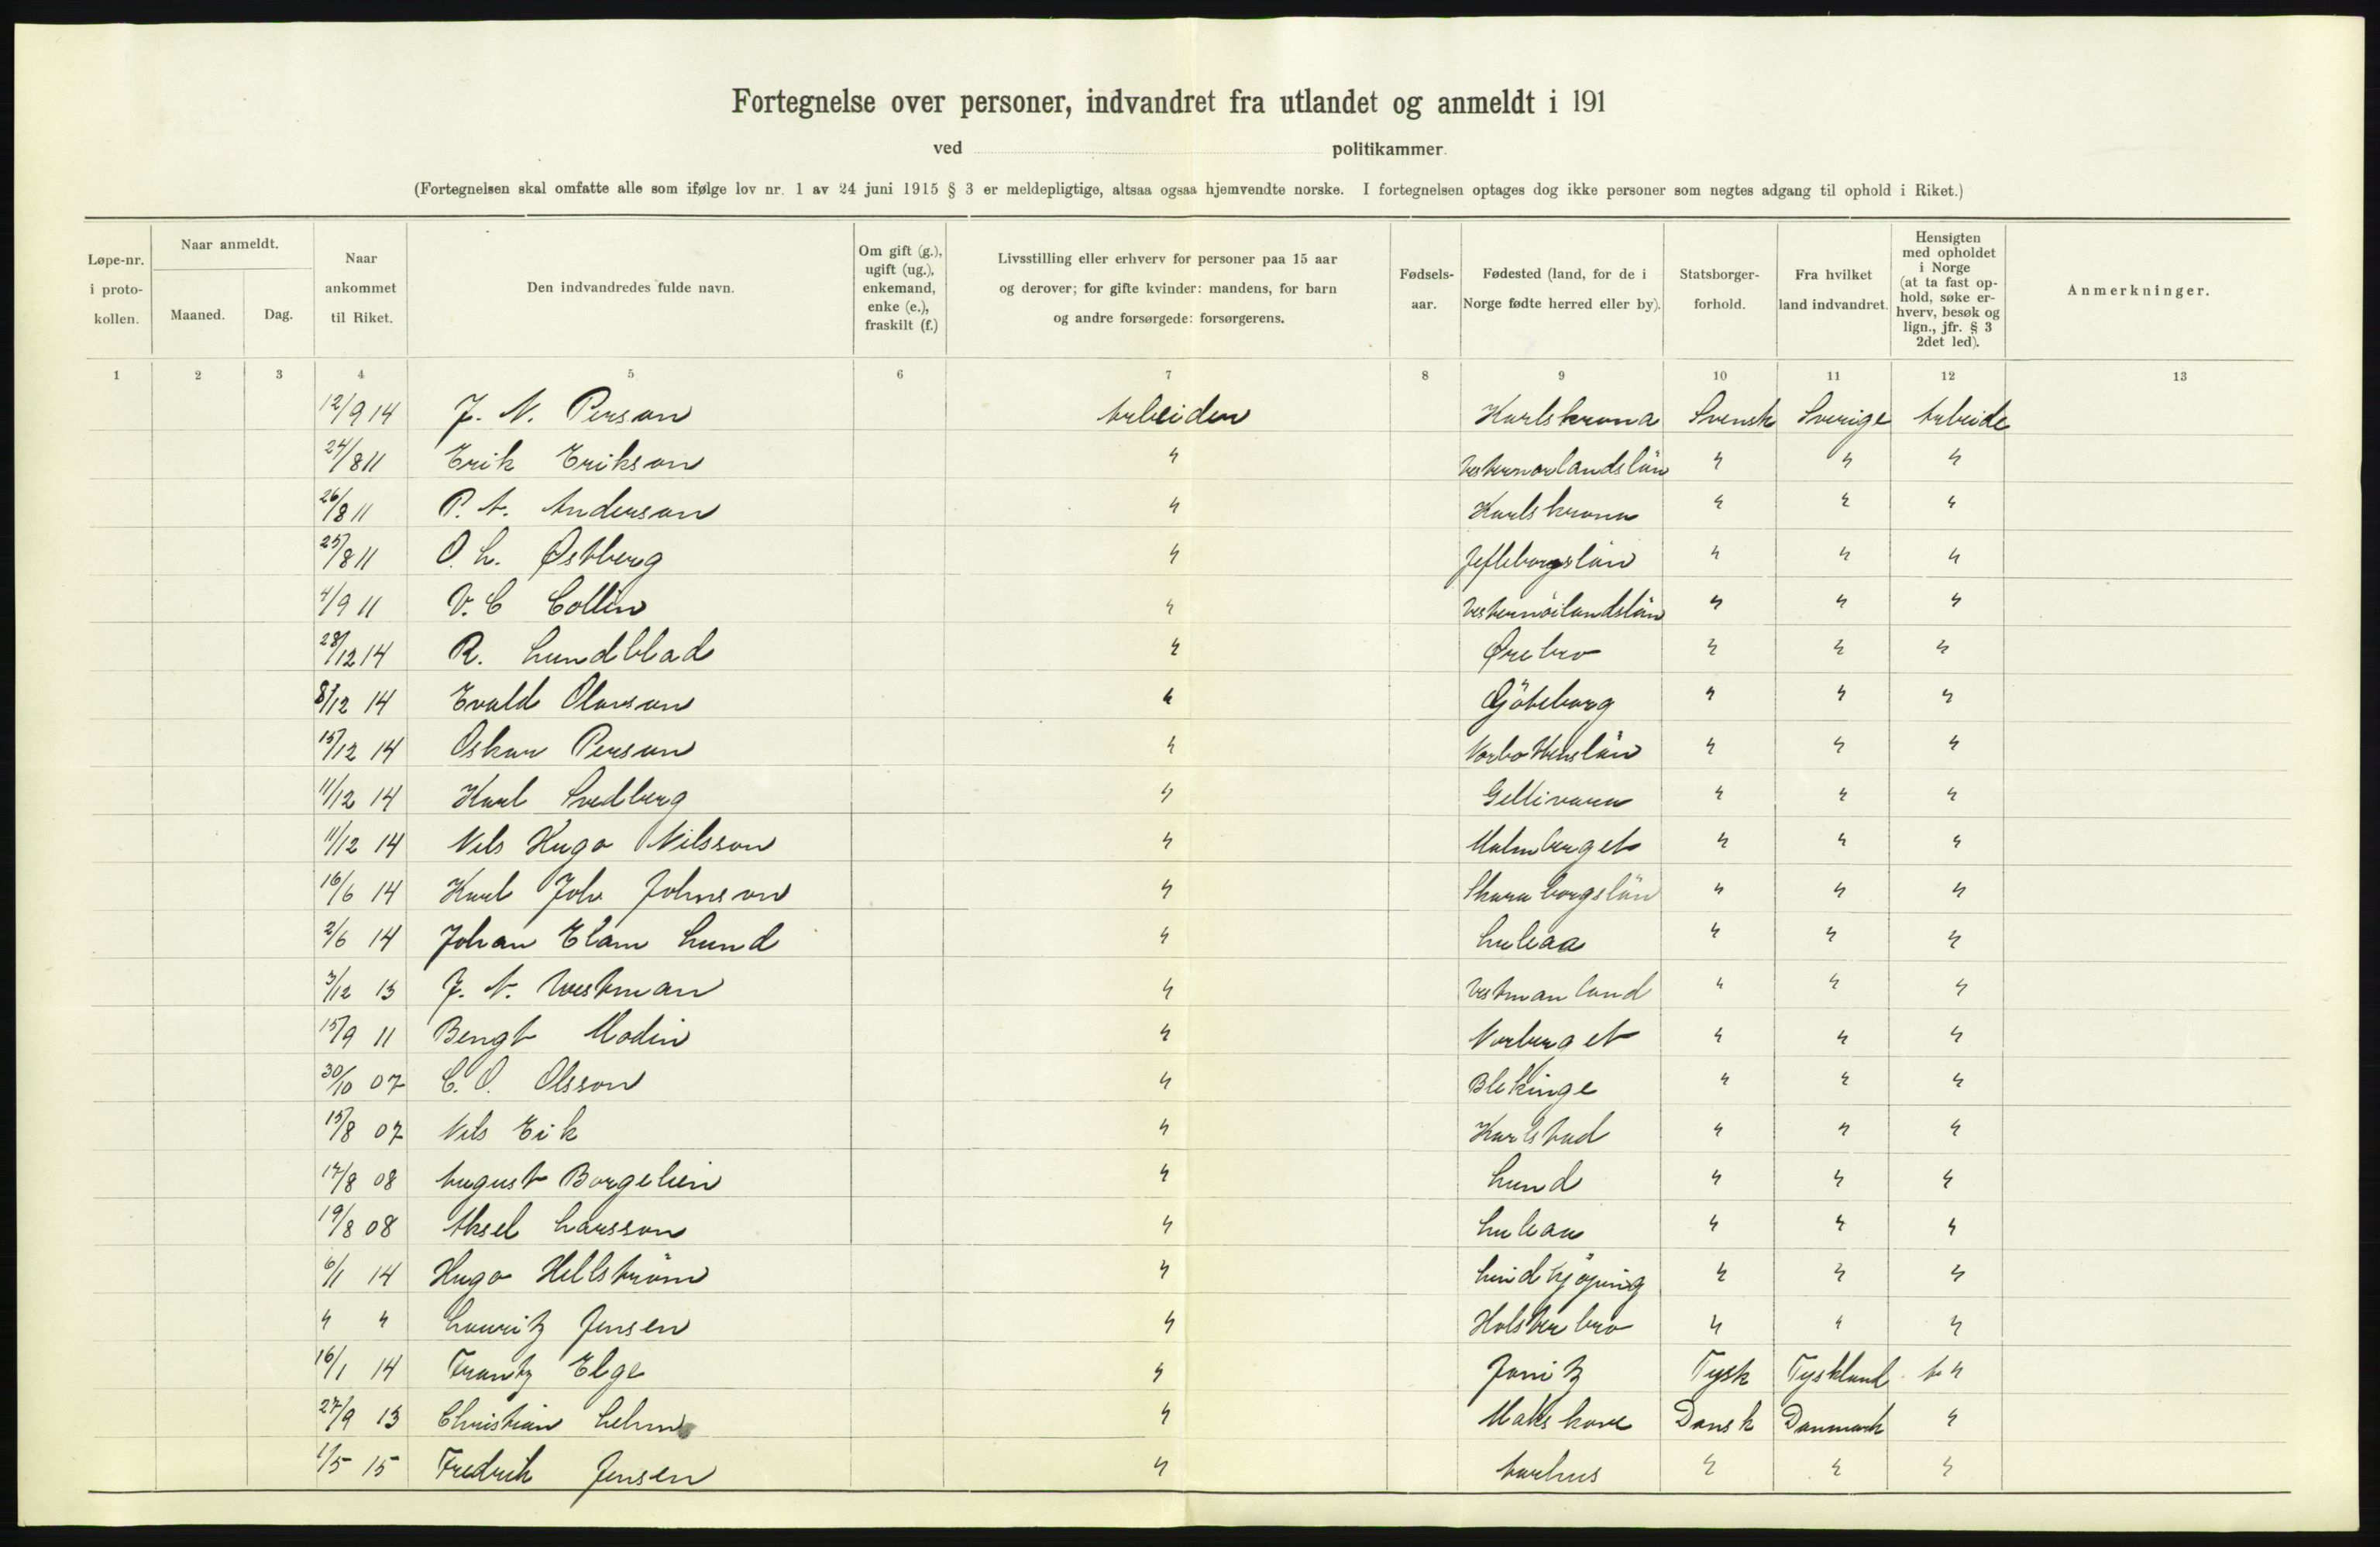 Fortegnelse over personer, indvandret fra utlandet og anmeldt i 191
ved politikammer.
(Fortegnelsen skal omfatte alle som ifølge lov nr. 1 av 24 juni 1915 § 3 er meldepligtige, altsaa ogsaa hjemvendte norske. I fortegnelsen optages dog ikke personer som negtes adgang til ophold i Riket.)
Løpe-nr. i proto- kollen.
Naar anmeldt.
Maaned.
Dag.
Naar ankommet til Riket.
Den indvandredes fulde navn.
Om gift (g.), ugift (ug.), enkemand, enke (e.), fraskilt (f.)
Livsstilling eller erhverv for personer paa 15 aar og derover; for gifte kvinder: mandens, for barn og andre forsørgede: forsørgerens.
Fødsels- aar.
Fødested (land, for de i Norge fødte herred eller by).
Statsborger- forhold.
Fra hvilket land indvandret.
Hensigten med opholdet i Norge (at ta fast op- hold, søke er- hverv, besøk og lign., jfr. § 3 2det led).
Anmerkninger.
1 2 3 4 5 6 7 8 9 10 11 12 13
12/9 14 J. N. Person Arbeider Karlskrona Svensk Sverige Arbeide
24/8 11 Erik Erikson " Vesternorlandslän " " "
26/8 11 P. A. Anderson " Karlskrona " " "
25/8 11 O. L. Østberg " Jefleborgslän " " "
4/9 11 V. C Collin " " " "
28/12 14 R. Lundblad " Ørebro " " "
8/12 14 Evald Olausson " Göteborg " " "
15/12 14 Oskar Person " Norbottenslän " " "
11/12 14 Karl Svedberg " Gellivara " " "
11/12 14 Nils Hugo Nilsson " Malmberget " " "
16/6 14 Karl Joh Johnson " Skaraborgslän " " "
2/6 14 Johan Elam Lund " Luleaa " " "
3/12 13 J. N. Westman " Vestmanland " " "
15/9 11 Bengt Modin " Norberget " " "
30/10 07 C. O. Olsson " Blekinge " " "
15/8 07 Nils Eik " Karlstad " " "
17/8 08 August Borgelien " Lund " " "
19/8 08 Aksel Larsson " Luleaa " " "
6/1 14 Hugo Hellström " Lindkjöping " " "
" " Lauritz Jensen " Holsterbro " " "
16/1 14 Frantz Elge " Janitz Tysk Tyskland "
27/9 13 Christian Lehm " Dansk Danmark "
1/5 15 Fredrik Jensen " Aarhus " " "